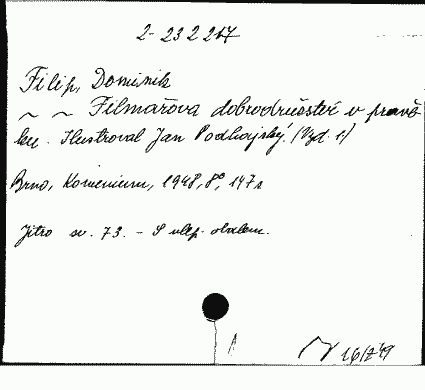 2-232217
Filip, Dominik
~ ~ Filmařova dobrodružství v pravě-
ku. Ilustroval Jan Podhajský. (Vyd. 1)
Brno, Komenium, 1948, 8°, 147 s
Jitro sv. 73. - S nlep. obalem.
16/2 49